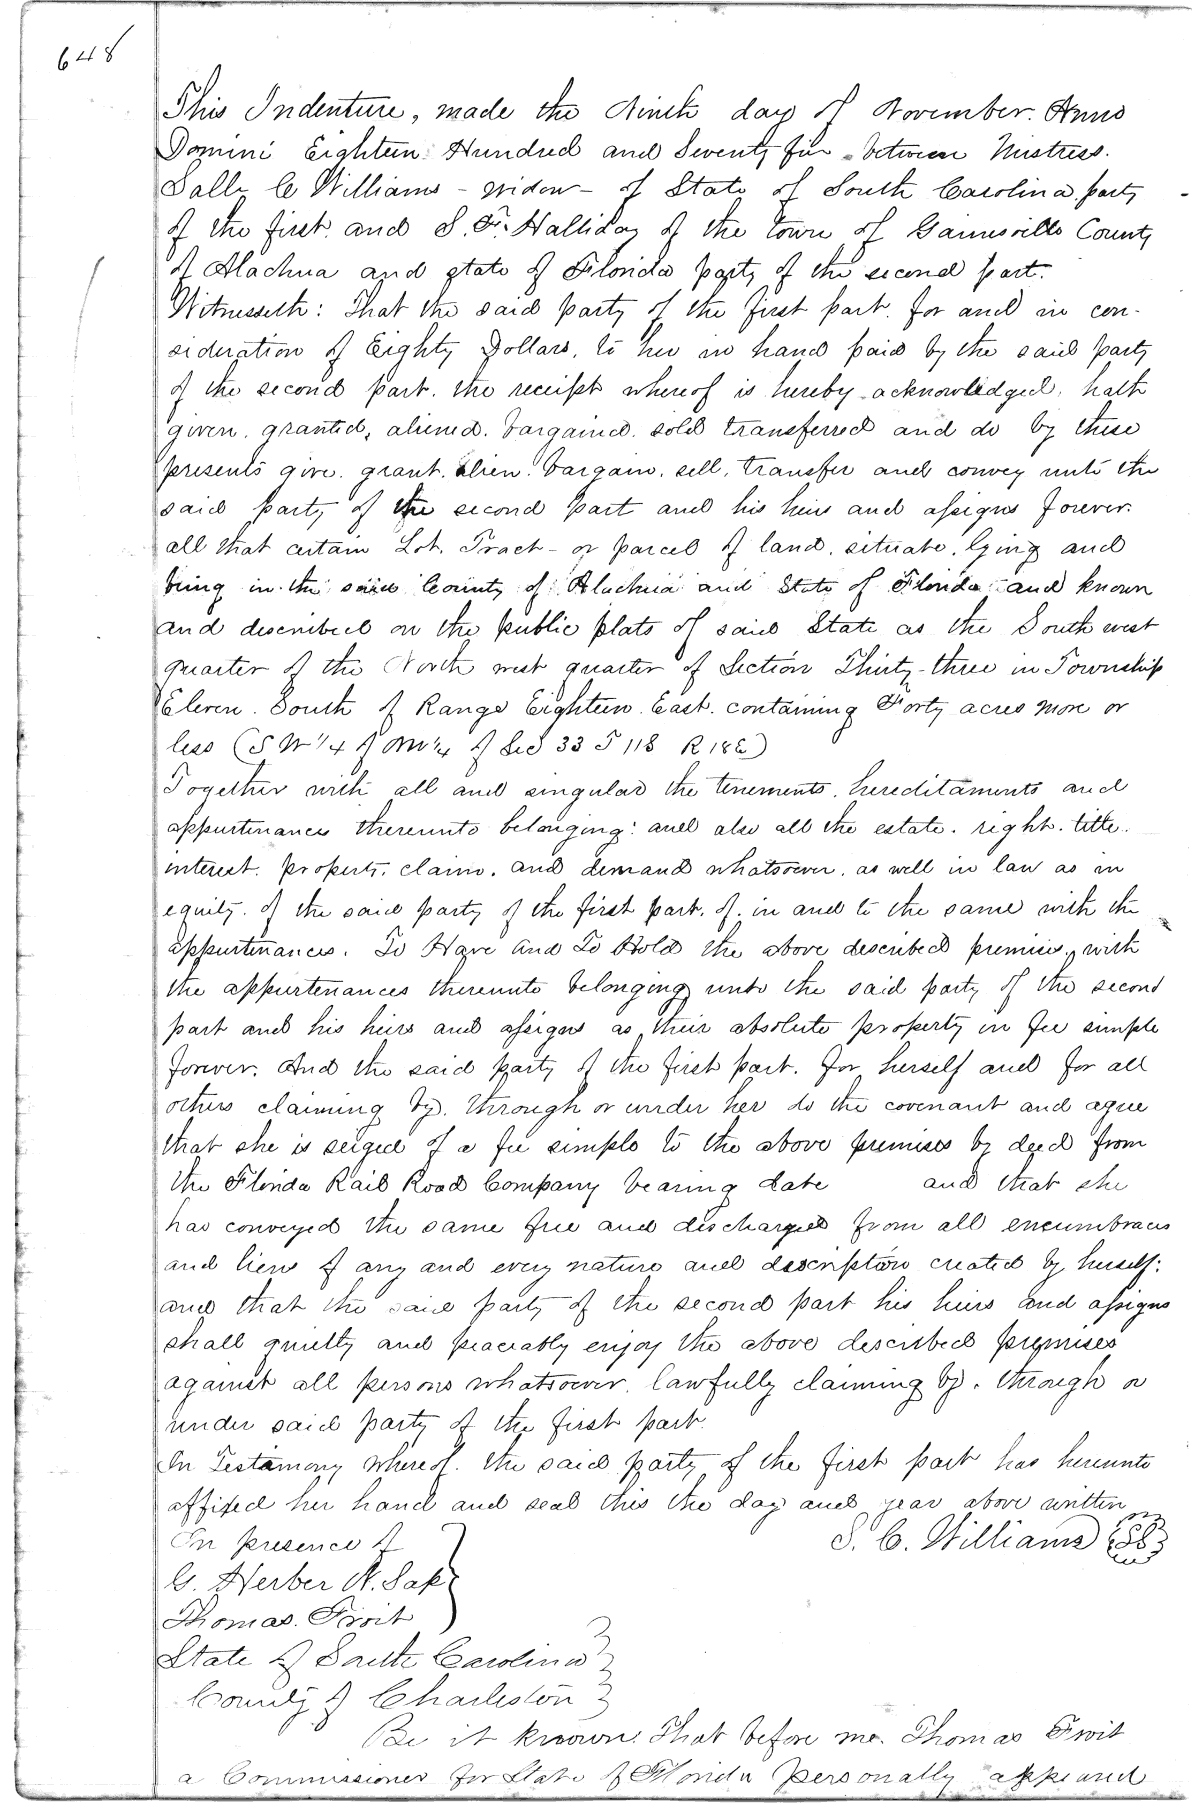 648
This Indenture, made the Ninth day of November. Anno
Domini Eighteen Hundred and Seventy five - between Mistress.
Sally C Williams - widow - of State of South Carolina party
of the first. and S. F. Halliday of the town of Gainesville County
of Alachua and state of Florida party of the second part.
Witnesseth: That the said party of the first part. for and in con-
sideration of Eighty Dollars, to her in hand paid by the said party
of the second part. the receipt whereof is hereby acknowledged, hath
given. granted, aliened. bargained. sold transferred and do by these
presents give. grant. alien. bargain. sell, transfer and convey unto the
said party of the second part and his heirs and assigns forever.
all that certain Lot. Tract - or parcel of land. situate. lying and
being in the said County of Alachua and State of Florida and known
and described on the public plats of said State as the South west
quarter of the North west quarter of Section Thirty-three in Township
Eleven. South of Range Eighteen. East. containing Forty acres more or
less (S W 1/4 of NW 1/4 of Sec 33 T 11S R 18E)
Together with all and singular the tenements. hereditaments and
appurtenances thereunto belonging: and also all the estate. right. title.
interest. property. claim. and demand whatsoever. as well in law as in
equity. of the said party of the first part. of. in and to the same with the
appurtenances. To Have and To Hold the above described premises, with
the appurtenances thereunto belonging unto the said party of the second
part and his heirs and assigns as their absolute property in fee simple
forever. And the said party of the first part. for herself and for all
others claiming by. through or under her do the covenant and agree
that she is seized of a fee simple to the above premises by deed from
the Florida Rail Road Company bearing date and that she
has conveyed the same free and discharged from all encumbraces
and liens of any and every nature and description created by herself:
and that the said party of the second part his heirs and assigns
shall quietly and peaceably enjoy the above described premises
against all persons whatsoever. lawfully claiming by. through or
under said party of the first part.
In Testamony whereof. the said party of the first part has hereunto
affixed her hand and seal this the day and year above written
In presence of S. C. Williams
G. Herber
Thomas
State of South Carolina
County of Charleston
Be it known. That before me. Thomas
a Commissioner for State of Florida personally appeared